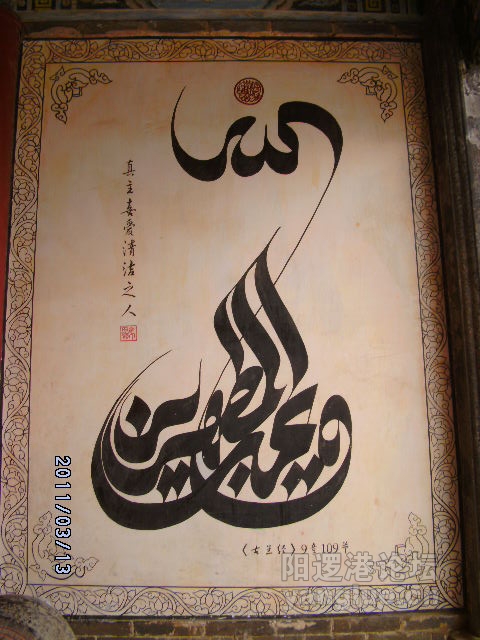 والله يحب المطهرين
真主喜愛清洁之人
《古兰经》9章109节
2011/03/13
阳逻港论坛